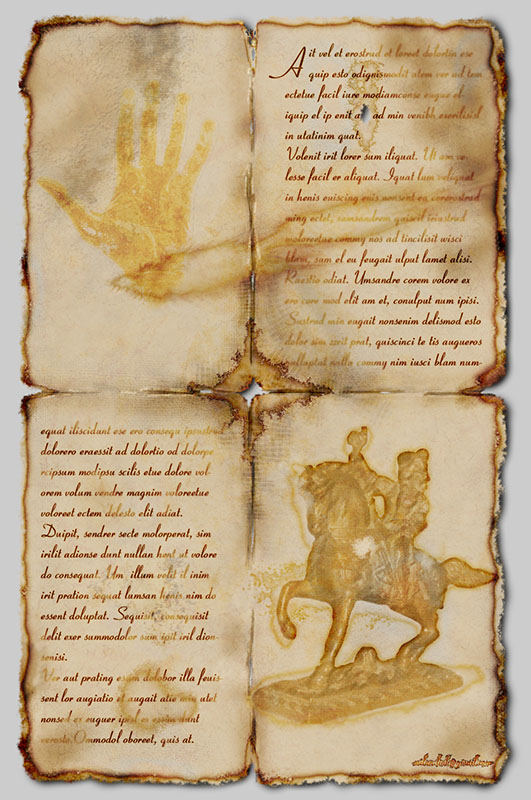 A it vel et erostrud et loreet dolortin ese
quip esto odignismodit atem ver ad tem
ectetue facil iure modiamconse eugue el
iquip el ip enit a ad min venibh exerilisisl
in utatinim quat.
Volenit irit lorer sum iliquat. Ut am ve-
lesse facil er aliquat. Iquat lum veliquat
in henis euiscing euis nonsent ea corerostrud
ming ectet, samsandrem quiscil iriustrud
moloreetue commy nos ad tincilisit wisci
blam, sam el eu feugait ulput lamet alisi.
Raestio odiat. Umsandre corem volore ex
ero core mod elit am et, conulput num ipisi.
Sustrud min eugait nonsenim delismod esto
dolor sim zzrit prat, quiscinci te tis augueros
nulluptat nulla commy nim iusci blam num-
equat iliscidunt ese ero consequ ipsustrud
dolorero eraessit ad dolortio od dolorpe
rcipsum modipsu scilis etue dolore vol-
orem volum vendre magnim voloreetue
voloreet ectem delesto elit adiat.
Duipit, sendrer secte molorperat, sim
irilit adionse dunt nullan hent ut volore
do consequat. Um illum velit il inim
irit pration sequat lumsan henis nim do
essent doluptat. Sequisit, consequisit
delit exer summodolor sum ipit iril dion-
senisi.
Ver aut prating essim dolobor illa feuis-
sent lor augiatio et augait atie min utet
nonsed ex euguer ipisl ex essim dunt
verosto Ommodol oboreet, quis at.